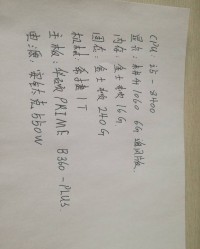 CPU i5-8400
显卡：1060 6G
内存：金士顿16G
固态：金士顿240G
机械：希捷 1T
主板：华硕PRIME B360-PLUS
电源：安钛克550W